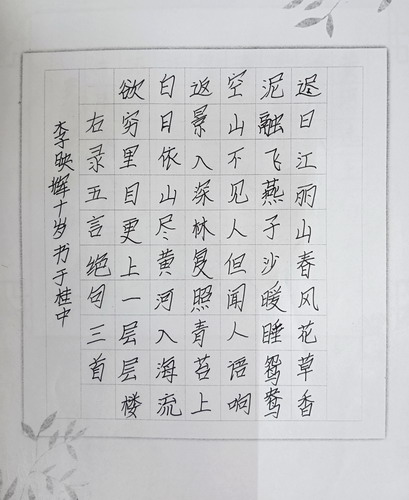 迟日江丽山春风花草香
泥融飞燕子沙暖睡鸳鸯
空山不见人但闻人语响
返景入深林复照青苔上
白日依山尽黄河入海流
欲穷里目更上一层层楼
右录五言绝句三首
李映辉十岁书于桂中